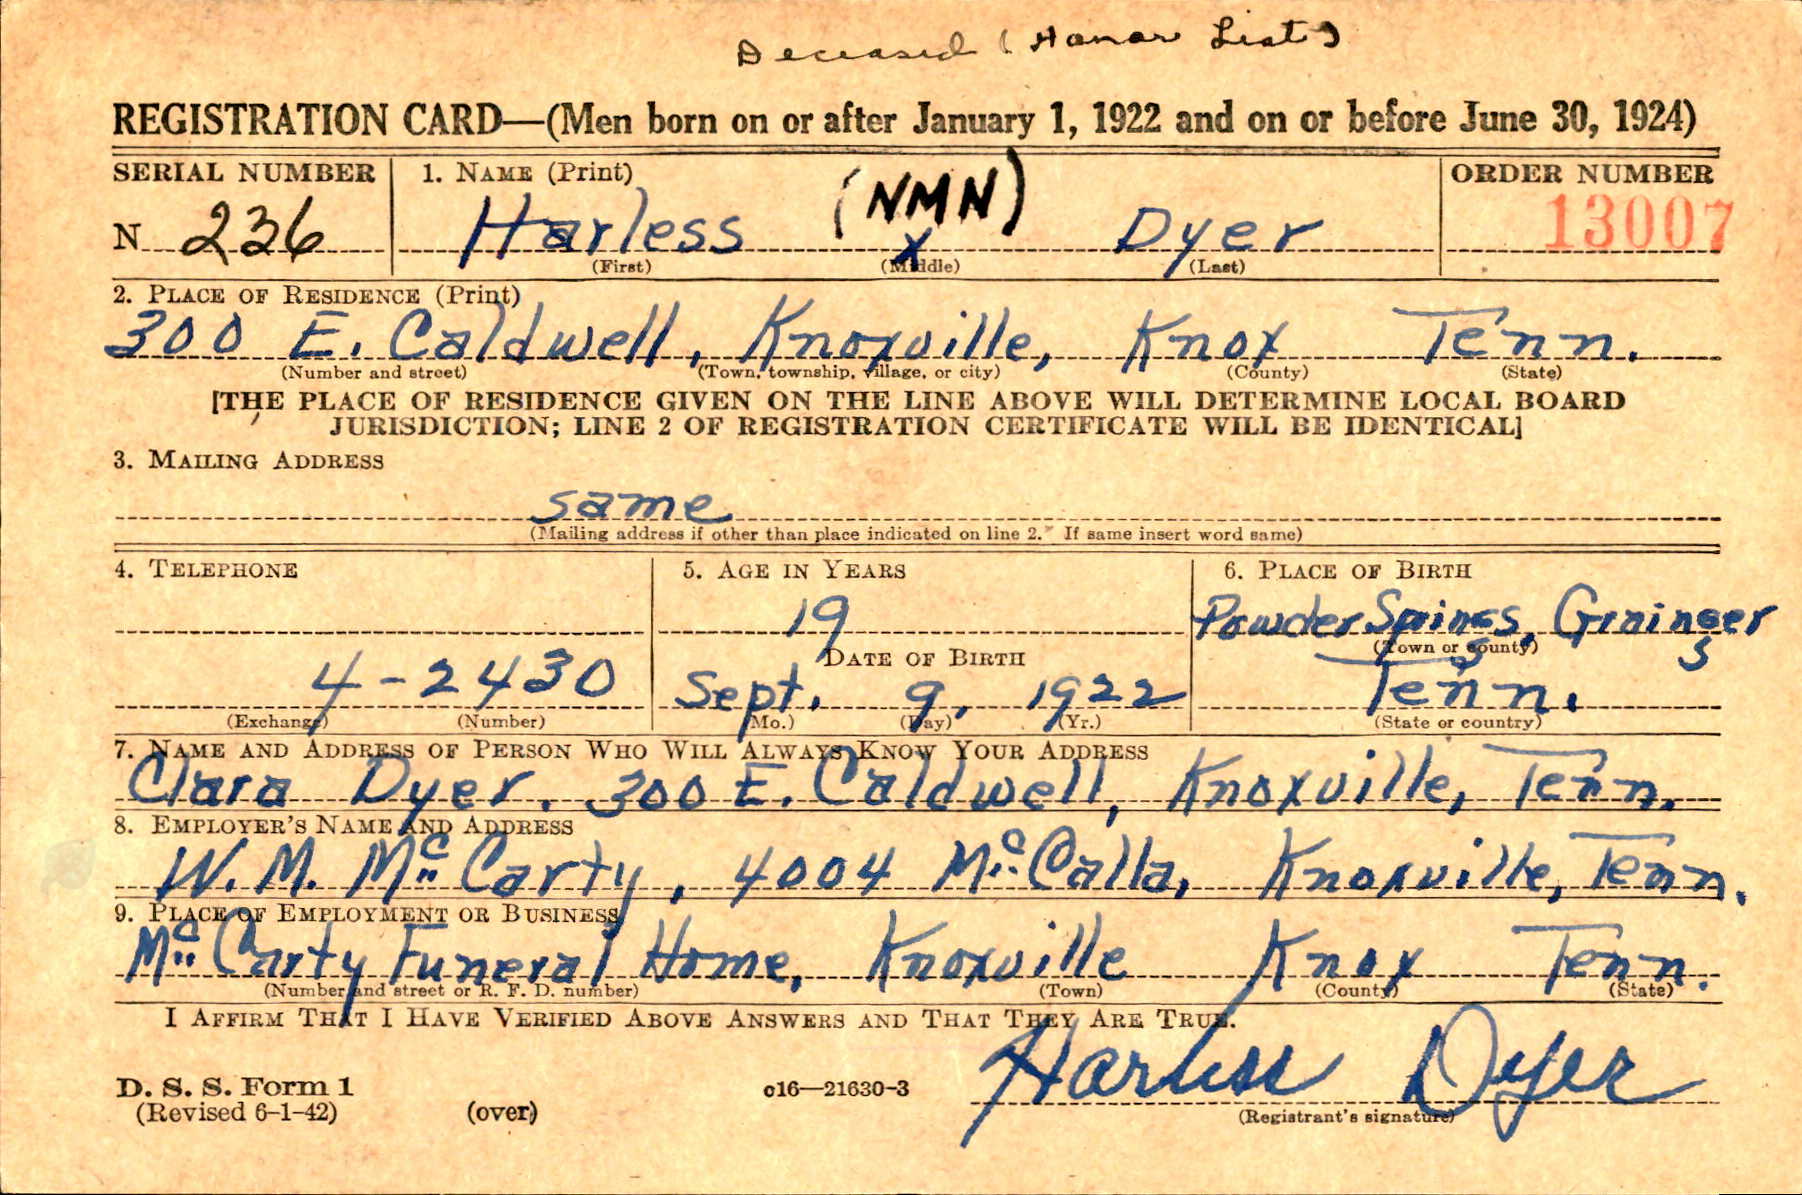 Deceased (Honor List)
REGISTRATION CARD—(Men born on or after January 1, 1922 and on or before June 30, 1924)
SERIAL NUMBER 1. NAME (Print) ORDER NUMBER
N 236 Harless (NMN) x Dyer 13007
(First) (Middle) (Last)
2. PLACE OF RESIDENCE (Print)
300 E. Caldwell, Knoxville, Knox Tenn.
(Number and street) (Town, township, village, or city) (County) (State)
[THE PLACE OF RESIDENCE GIVEN ON THE LINE ABOVE WILL DETERMINE LOCAL BOARD
JURISDICTION; LINE 2 OF REGISTRATION CERTIFICATE WILL BE IDENTICAL]
3. MAILING ADDRESS
same
(Mailing address if other than place indicated on line 2. If same insert word same)
4. TELEPHONE 5. AGE IN YEARS 6. PLACE OF BIRTH
19 Powder Springs, Grainger
DATE OF BIRTH (Town or county)
4-2430 Sept. 9, 1922 Tenn.
(Exchange) (Number) (Mo.) (Day) (Yr.) (State or country)
7. NAME AND ADDRESS OF PERSON WHO WILL ALWAYS KNOW YOUR ADDRESS
Clara Dyer. 300 E. Caldwell, Knoxville, Tenn.
8. EMPLOYER'S NAME AND ADDRESS
W. M. McCarty, 4004 McCalla, Knoxville, Tenn.
9. PLACE OF EMPLOYMENT OR BUSINESS
McCarty Funeral Home, Knoxville Knox Tenn.
(Number and street or R. F. D. number) (Town) (County) (State)
I AFFIRM THAT I HAVE VERIFIED ABOVE ANSWERS AND THAT THEY ARE TRUE.
Harless Dyer
D. S. S. Form 1 c16—21630-3
(Revised 6-1-42) (over) (Registrant's signature)